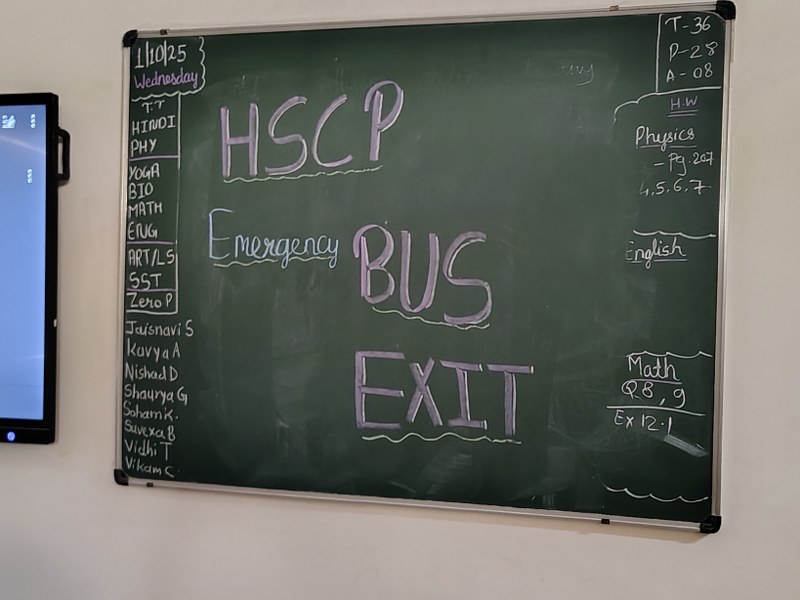 1/10/25
Wednesday
T.T
HINDI
PHY
YOGA
BIO
MATH
ENG
ART/LS
SST
Zero P
Jaisnavi S
Kavya A
Nishad D
Shaurya G
Soham K.
Suvexa B
Vidhi T
Vikam C
HSCP
Emergency BUS
EXIT
T-36
P-28
A-08
H.W
Physics
- Pg. 207
4,5,6,7
English
Math
Q8, 9
Ex 12.1